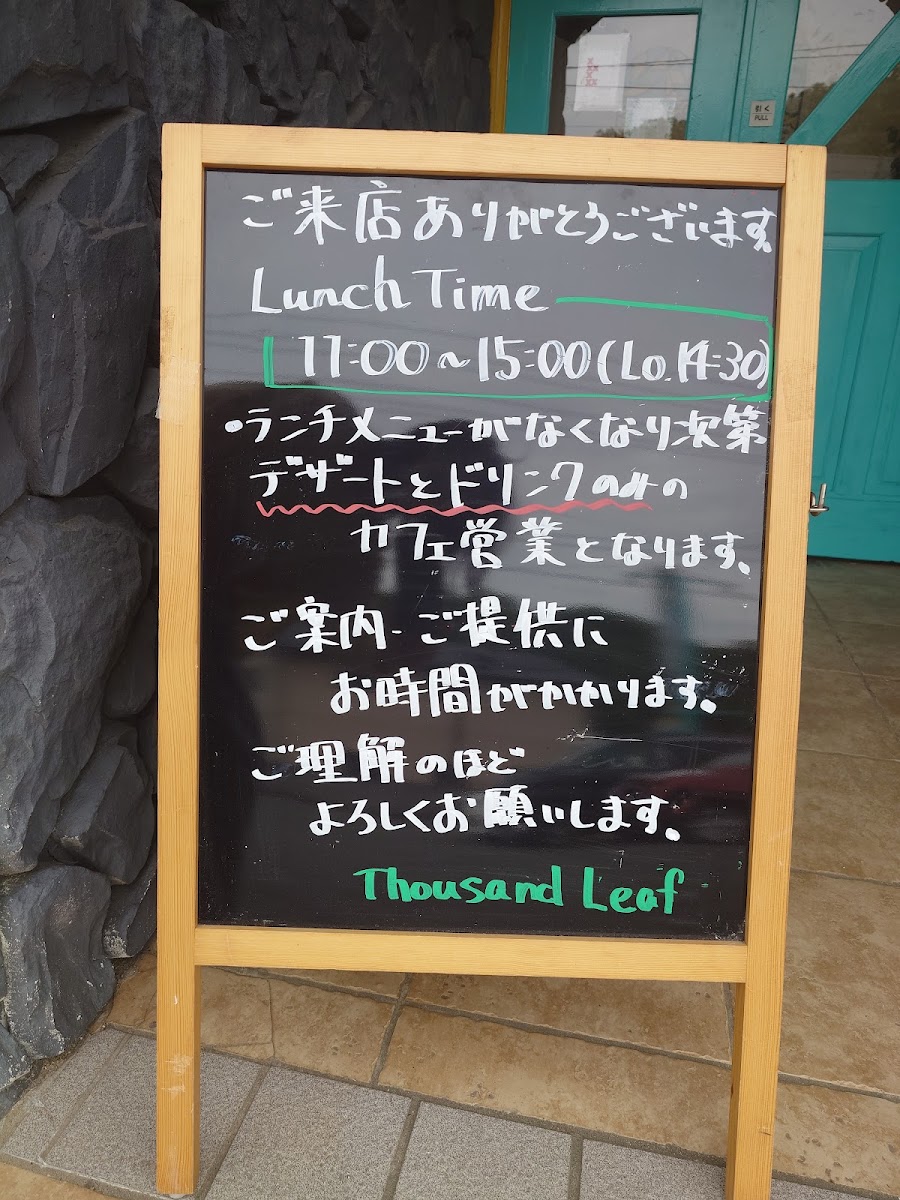 引く
PULL
ご来店ありがとうございます。
Lunch Time
11:00~15:00(Lo.14:30)
・ランチメニューがなくなり次第
デザートとドリンクのみの
カフェ営業となります。
ご案内・ご提供に
お時間がかかります。
ご理解のほど
よろしくお願いします。
Thousand Leaf